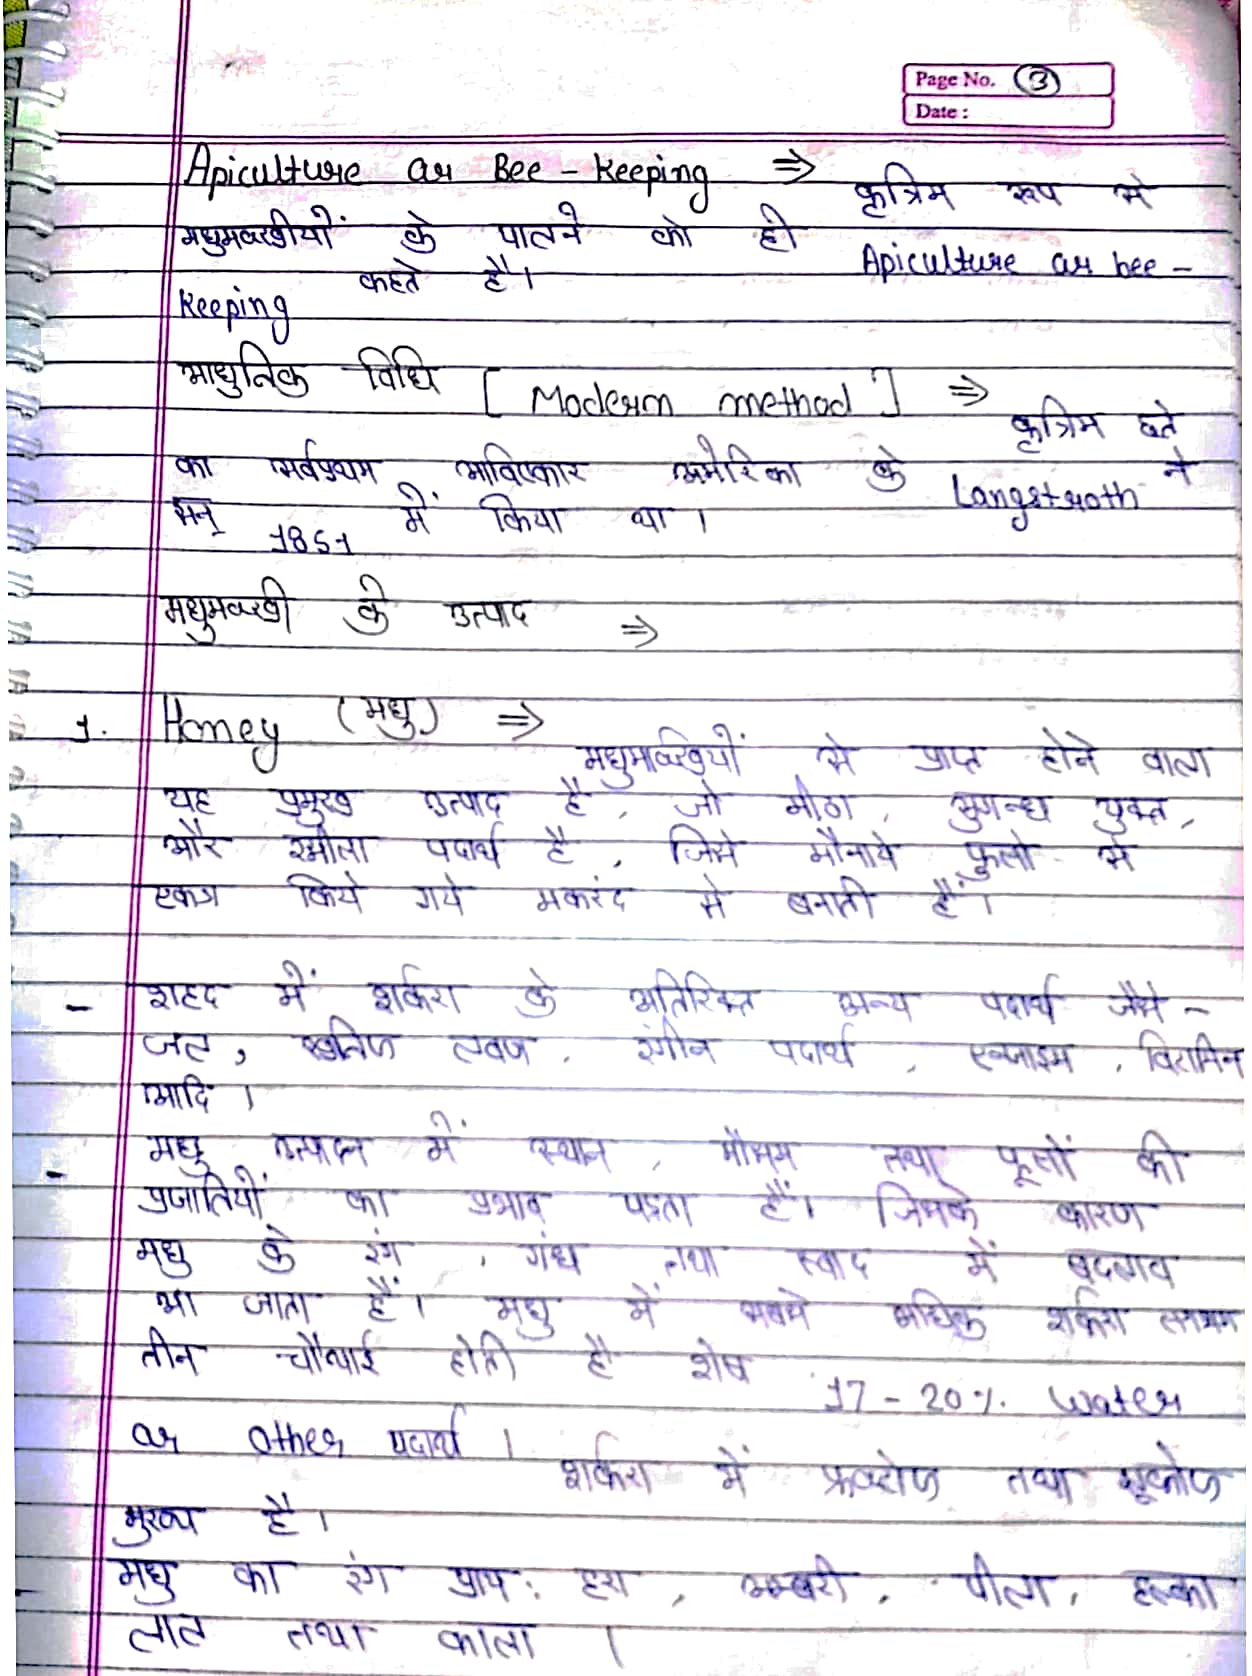 Page No. 3
Date :
Apiculture or Bee-Keeping ⇒ कृत्रिम रूप से
मधुमक्खीयों के पालने को ही Apiculture or bee-
keeping कहते है।
आधुनिक विधि [ Modern method ] ⇒ कृत्रिम छते
का सर्वप्रथम आविष्कार अमेरिका के Langstroth ने
सन् 1851 में किया था।
मधुमक्खी के उत्पाद ⇒
1. Honey (मधु) ⇒ मधुमक्खियों से प्राप्त होने वाला
यह प्रमुख उत्पाद है, जो मीठा, सुगन्ध युक्त,
और रसीला पदार्थ है, जिसे मौनाये फुलो से
एकत्र किये गये मकरंद से बनाती हैं।
- शहद में शर्करा के अतिरिक्त अन्य पदार्थ जैसे -
जल, खनिज लवण, रंगीन पदार्थ, एन्जाइम, विटामिन
आदि।
- मधु उत्पादन में स्थान, मौसम तथा फूलों की
प्रजातियों का प्रभाव पडता हैं। जिसके कारण
मधु के रंग, गंध तथा स्वाद में बदलाव
आ जाता हैं। मधु में सबसे अधिक शर्करा लगभग
तीन चौथाई होती है शेष 17-20% water
or other पदार्थ। शर्करा में फ्रक्टोज तथा ग्लूकोज
मुख्य है।
- मधु का रंग प्राय: हरा, अम्बरी, पीला, हल्का
लाल तथा काला।